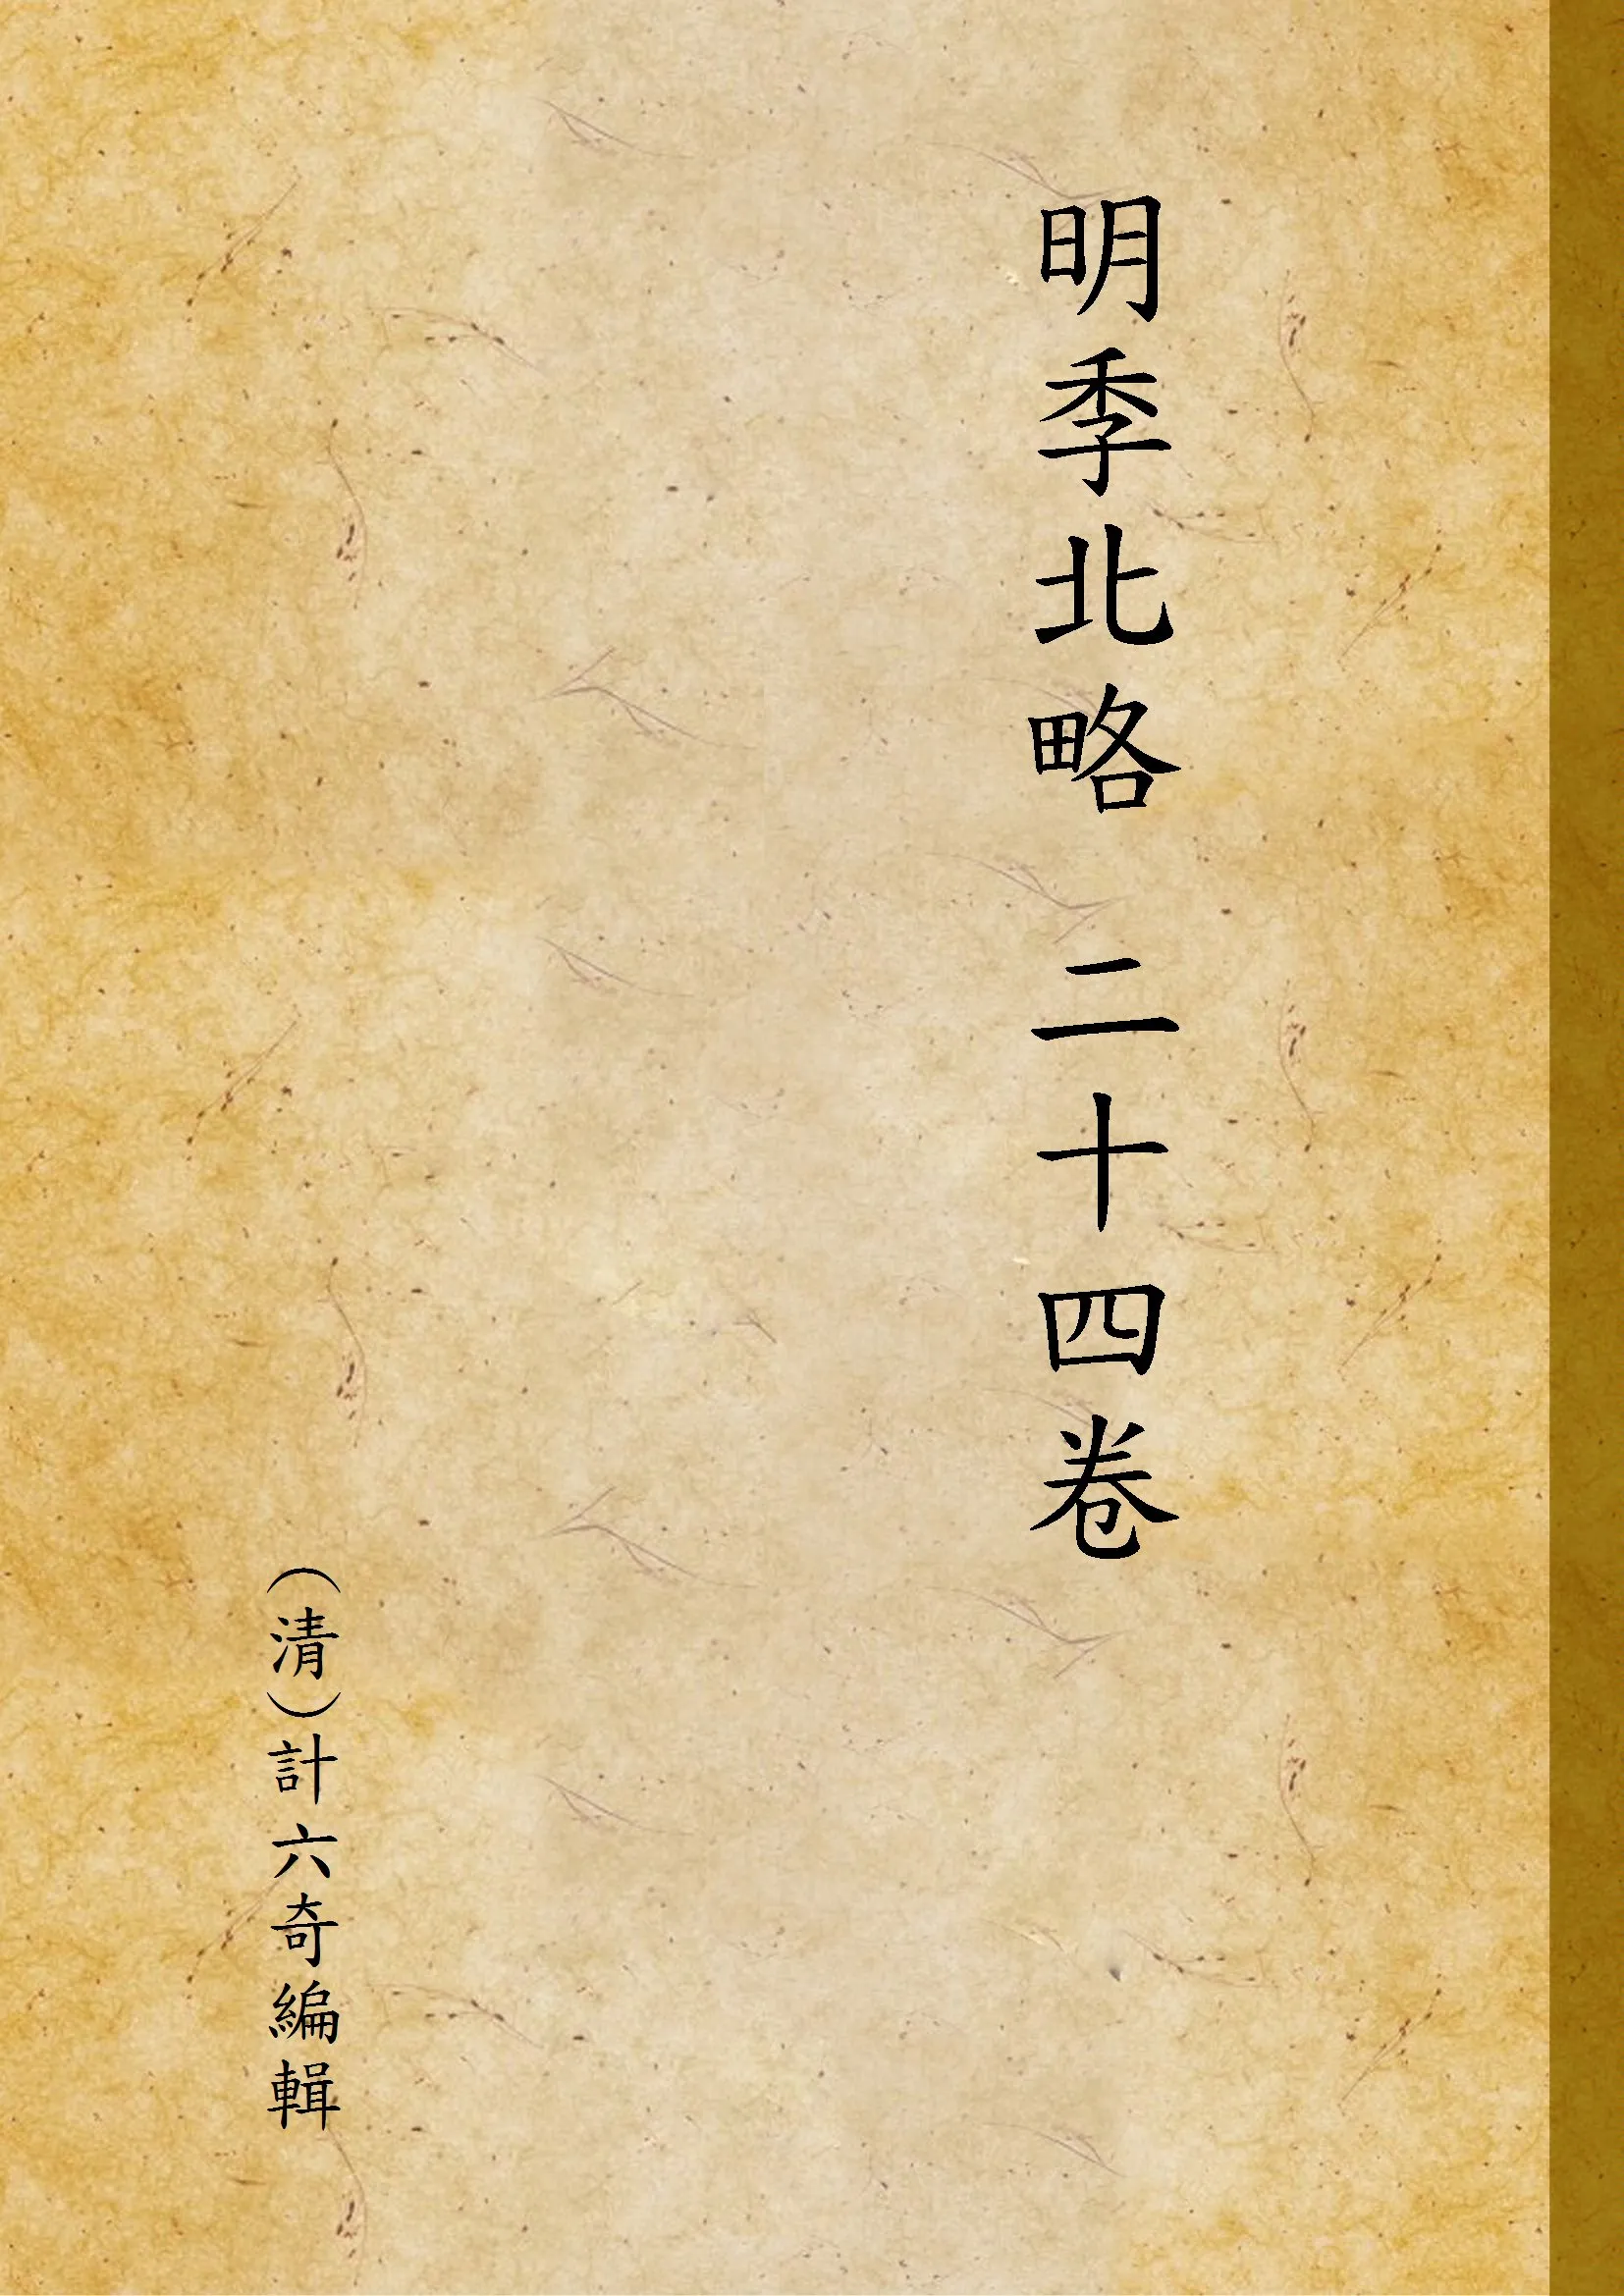 明季北略 二十四卷
（清）計六奇編輯